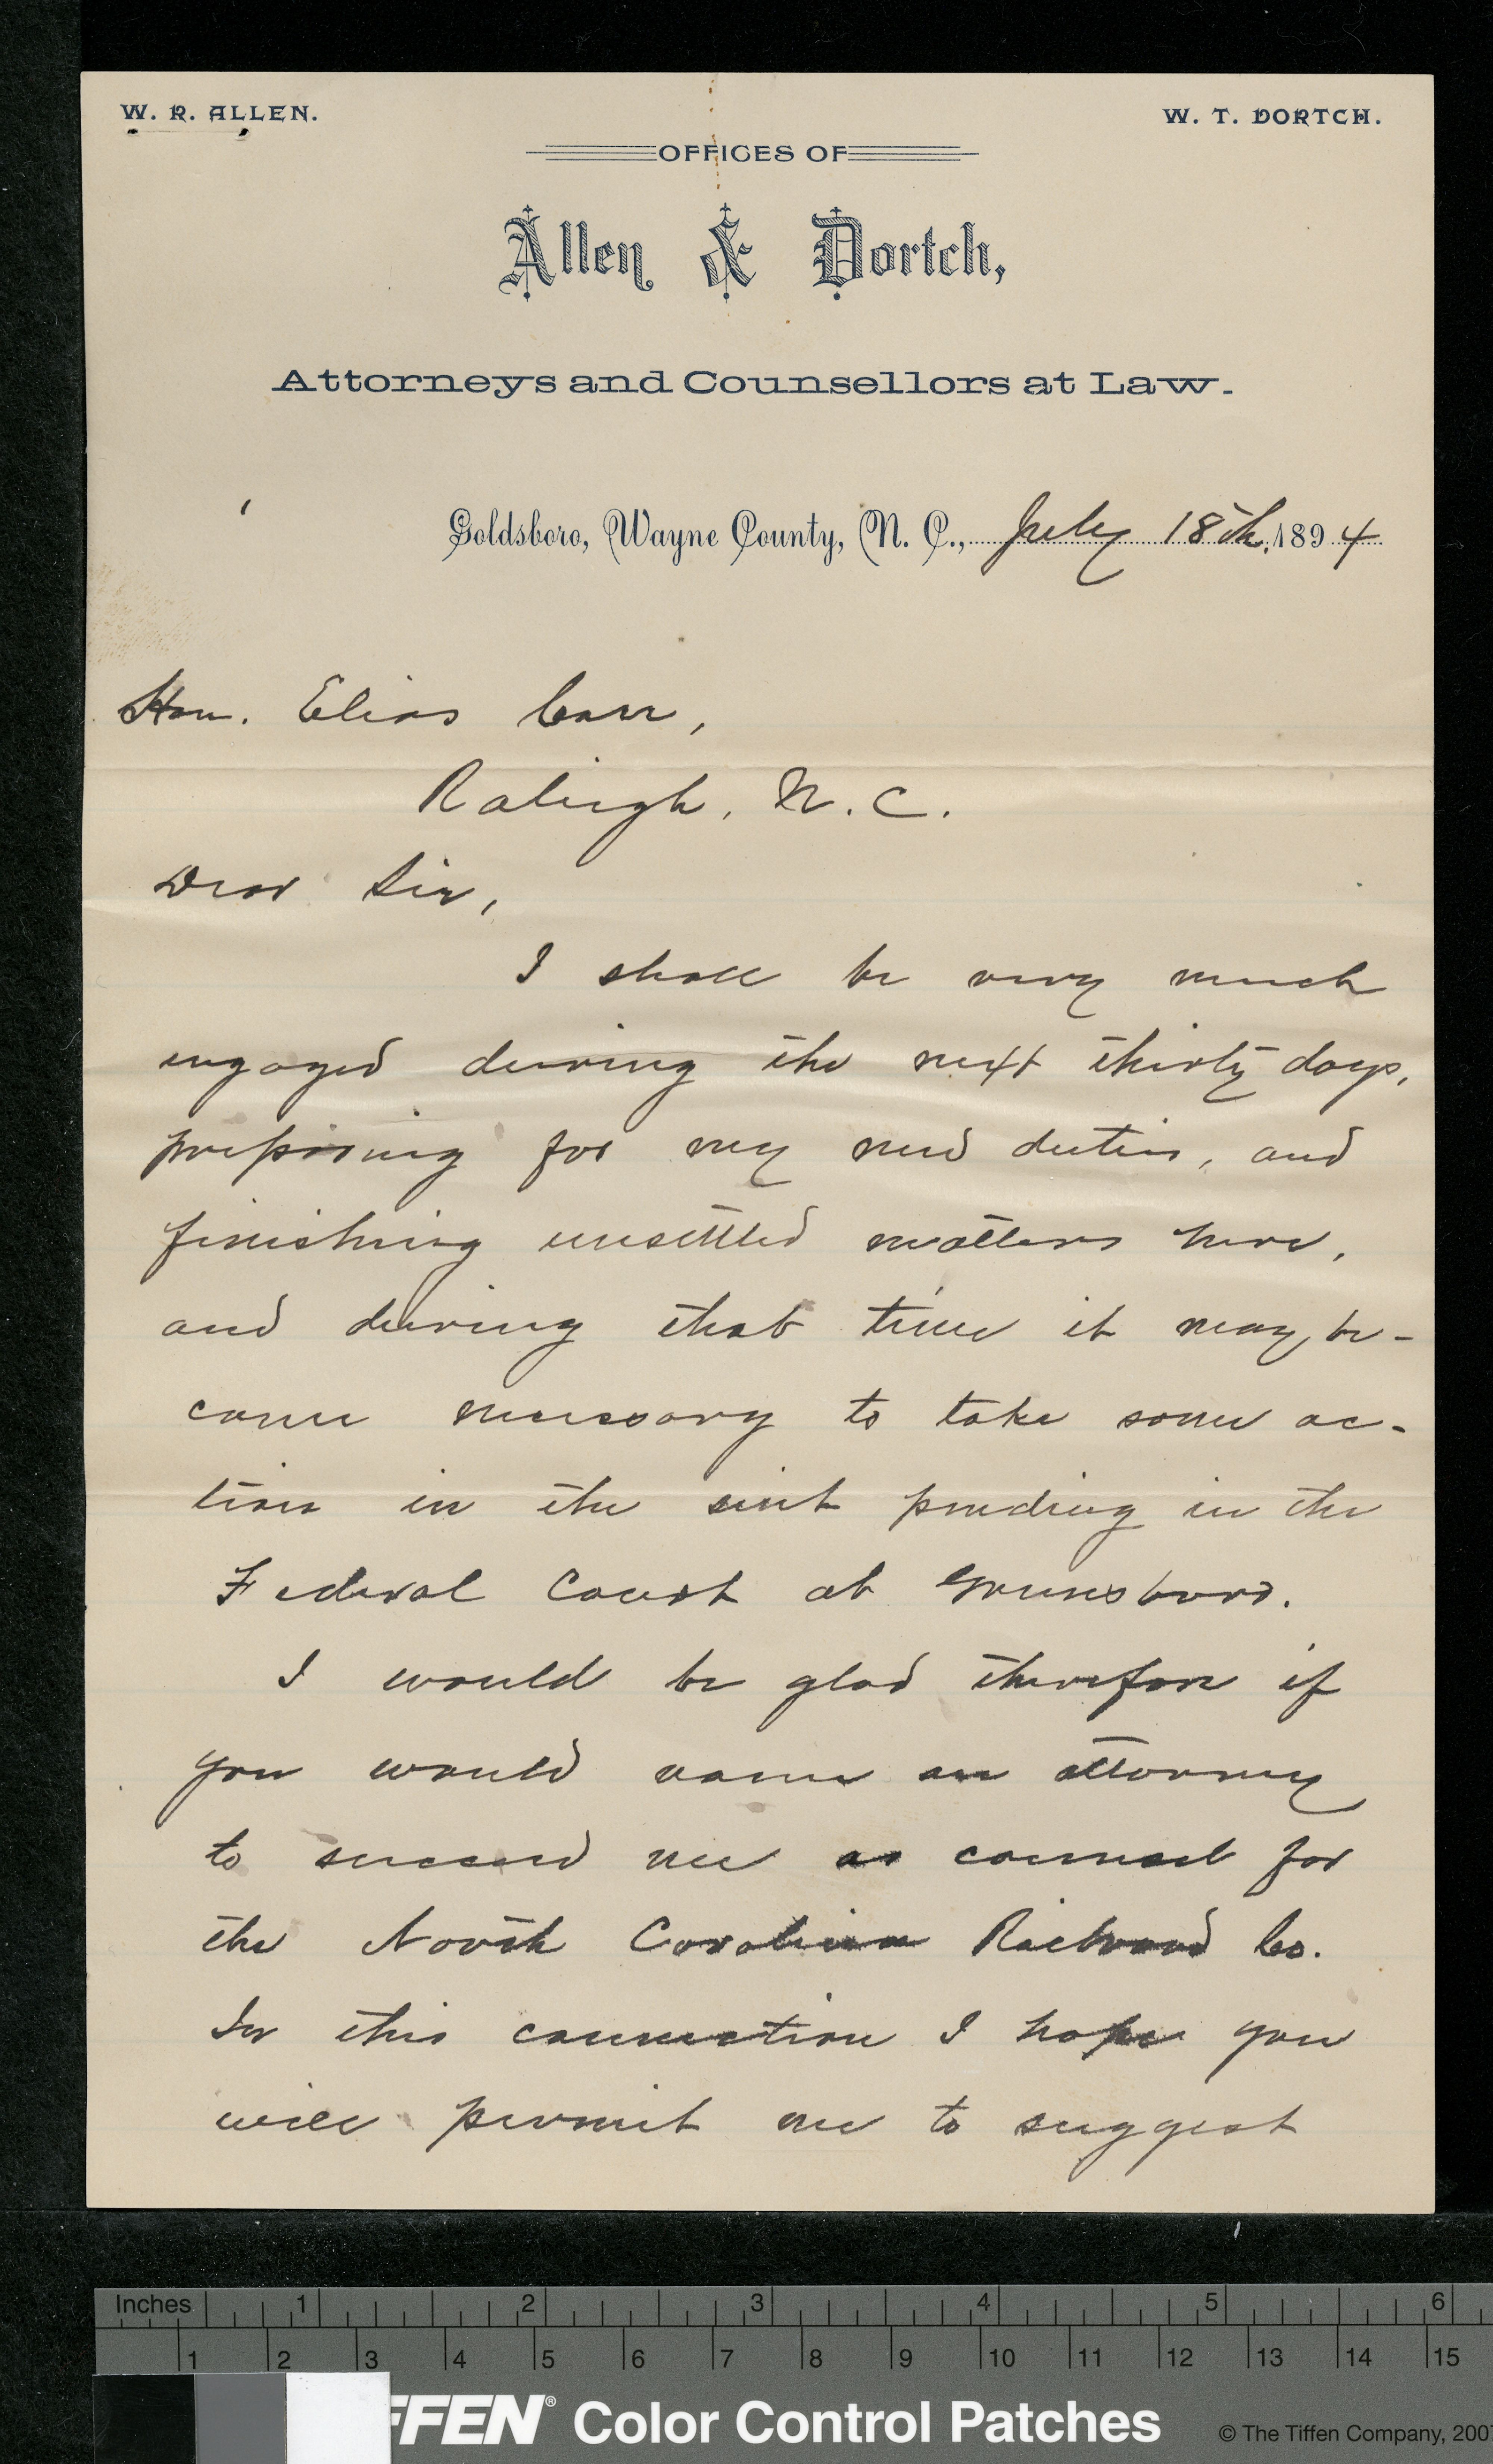 W. R. ALLEN.
W. T. DORTCH.
OFFICES OF
Allen & Dortch,
Attorneys and Counsellors at Law.
Goldsboro, Wayne County, N. C., July 18th, 1894
Hon. Elias Carr,
Raleigh, N. C.
Dear Sir,
I shall be very much
engaged during the next thirty days,
preparing for my new duties, and
finishing unsettled matters here,
and during that time it may be-
come necessary to take some ac-
tion in the suit pending in the
Federal Court at Greensboro.
I would be glad therefore if
you would name an attorney
to succeed me as counsel for
the North Carolina Railroad Co.
In this connection I hope you
will permit me to suggest
Inches 1 2 3 4 5 6
1 2 3 4 5 6 7 8 9 10 11 12 13 14 15
FFEN® Color Control Patches
© The Tiffen Company, 2007